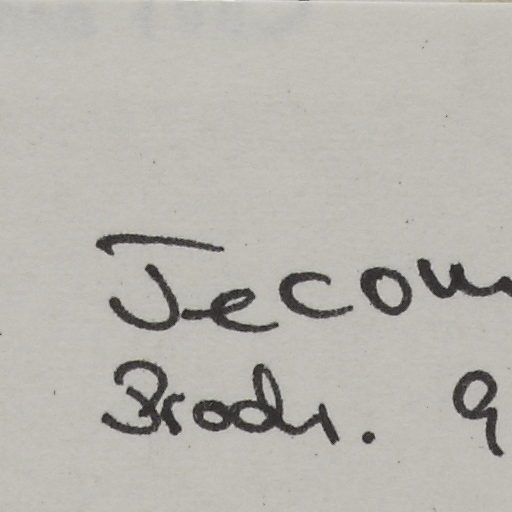 Jecom
Brodr. 9